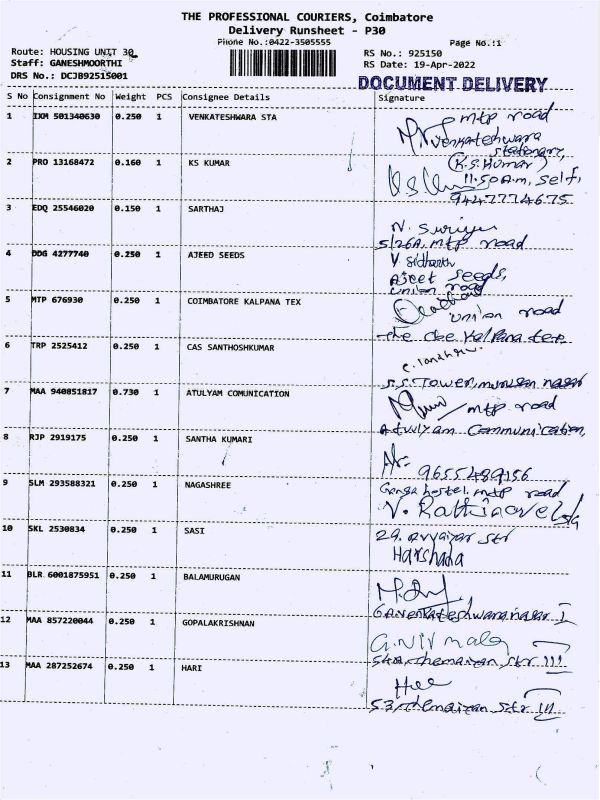 THE PROFESSIONAL COURIERS, Coimbatore
Delivery Runsheet - P30
Phone No.:0422-3505555
Page No.:1
Route: HOUSING UNIT 30
RS No.: 925150
Staff: GANESHMOORTHI
RS Date: 19-Apr-2022
DRS No.: DCJB92515001
DOCUMENT DELIVERY
S No Consignment No Weight PCS Consignee Details Signature
1 IXM 501340630 0.250 1 VENKATESHWARA STA
mtp road
venkateshwara
stationary,
2 PRO 13168472 0.160 1 KS KUMAR
(K.S. Kumar)
11:50 A.m, self,
9447774675
3 EDQ 25546020 0.150 1 SARTHAJ
N. Suriya
5/26A, mtp road
4 DDG 4277740 0.250 1 AJEED SEEDS
V Sidharth
Ajeet seeds,
union road
5 MTP 676930 0.250 1 COIMBATORE KALPANA TEX
union road
the cbe Kalpana tex
6 TRP 2525412 0.250 1 CAS SANTHOSHKUMAR
S.S. Tower, murugan nagar
7 MAA 940851817 0.730 1 ATULYAM COMUNICATION
mtp road
Atulyam Communication,
8 RJP 2919175 0.250 1 SANTHA KUMARI
9655489156
9 SLM 293588321 0.250 1 NAGASHREE
Ganga hostel, mtp road
V. Rathinavel
10 SKL 2530834 0.250 1 SASI
29, avvaiyar str
Harshada
11 BLR 6001875951 0.250 1 BALAMURUGAN
6A venkateshwara nagar I
12 MAA 857220044 0.250 1 GOPALAKRISHNAN
G. Nirmala
str III
13 MAA 287252674 0.250 1 HARI
53, str III